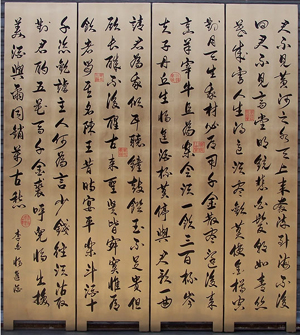 君不見黃河之水天上來奔流到海不復
回君不見高堂明鏡悲白髮朝如青絲
暮成雪人生得意須盡歡莫使金樽空
對月天生我材必有用千金散盡還復來
烹羊宰牛且為樂會須一飲三百杯岑
夫子丹丘生將進酒杯莫停與君歌一曲
請君為我傾耳聽鐘鼓饌玉不足貴但
願長醉不復醒古來聖賢皆寂寞惟有
飲者留其名陳王昔時宴平樂斗酒十
千恣歡謔主人何為言少錢徑須沽取
對君酌五花馬千金裘呼兒將出換
美酒與爾同銷萬古愁 李白將進酒